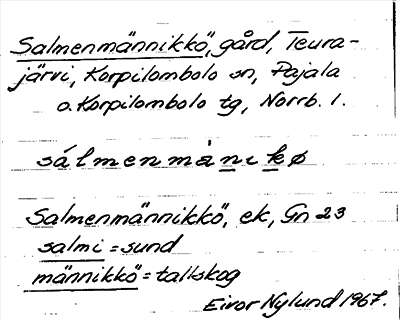 Salmenmännikkö, gård, Teura-
järvi, Korpilombolo sn, Pajala
o. Korpilombolo tg, Norrb. l.
sálmenmànikø
Salmenmännikkö, ek, Gn 23
salmi = sund
männikkö = tallskog
Eivor Nylund 1967.